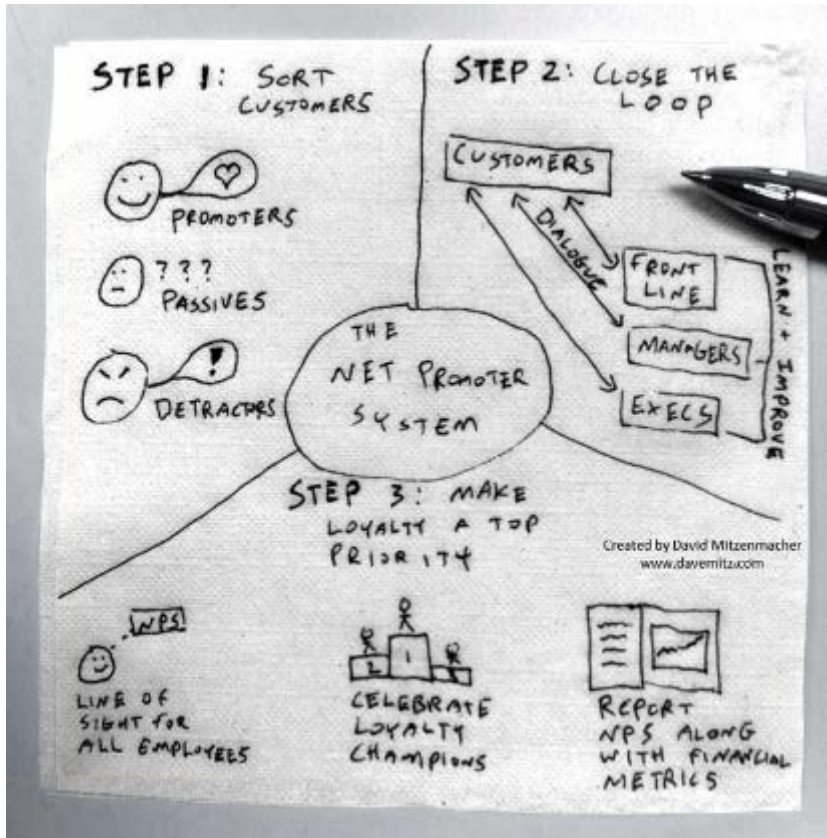 STEP 1: SORT
CUSTOMERS
PROMOTERS
? ? ?
PASSIVES
!
DETRACTORS
STEP 2: CLOSE THE
LOOP
CUSTOMERS
DIALOGUE
FRONT
LINE
MANAGERS
EXECS
LEARN + IMPROVE
THE
NET PROMOTER
SYSTEM
STEP 3: MAKE
LOYALTY A TOP
PRIORITY
Created by David Mitzenmacher
www.davemitz.com
NPS
LINE OF
SIGHT FOR
ALL EMPLOYEES
2 1
CELEBRATE
LOYALTY
CHAMPIONS
REPORT
NPS ALONG
WITH FINANCIAL
METRICS